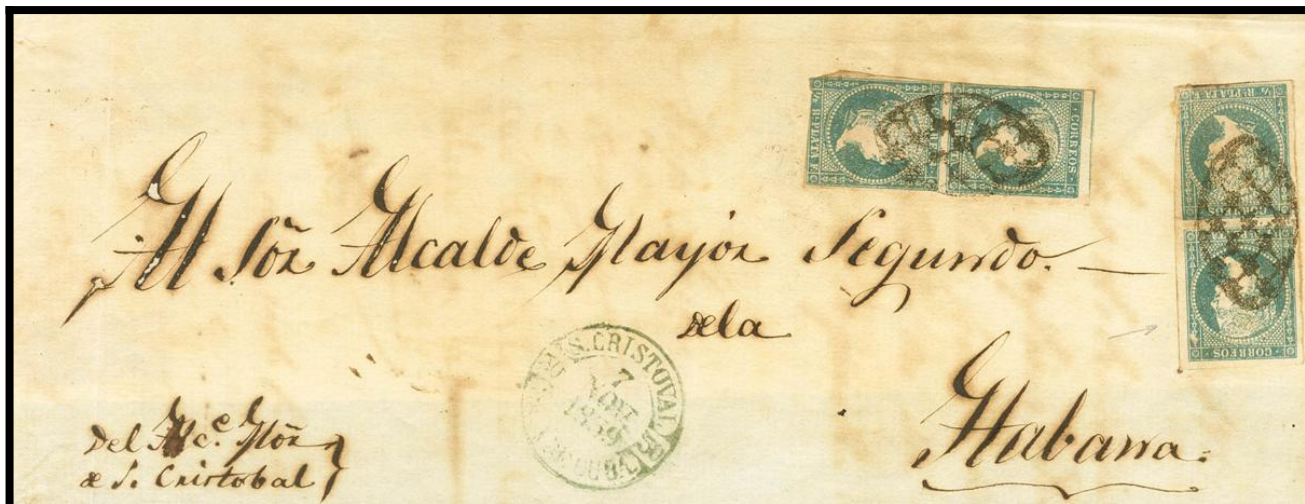 ½ Rl PLATA F.
CORREOS
½ Rl PLATA F.
CORREOS
Al Sõr Alcalde Mayor Segundo.
dela
Habana.
S. CRISTOVAL
7
1859
CUBA
Del Alc.e Mõr
de S. Cristobal